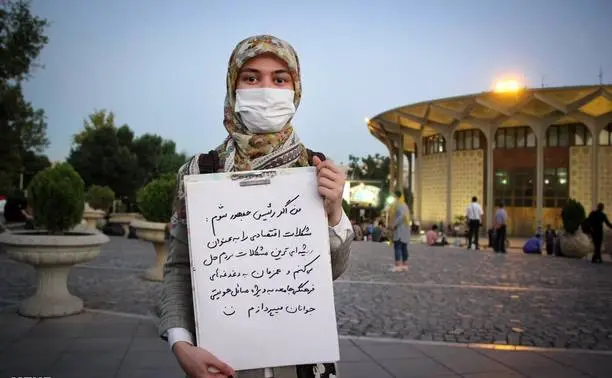 من اگر رئیس جمهور شوم :
مشکلات اقتصادی را به عنوان
ریشه ای ترین مشکلات مردم حل
می کنم و همزمان به دغدغه های
فرهنگی جامعه به ویژه مسائل هویتی
جوانان میپردازم